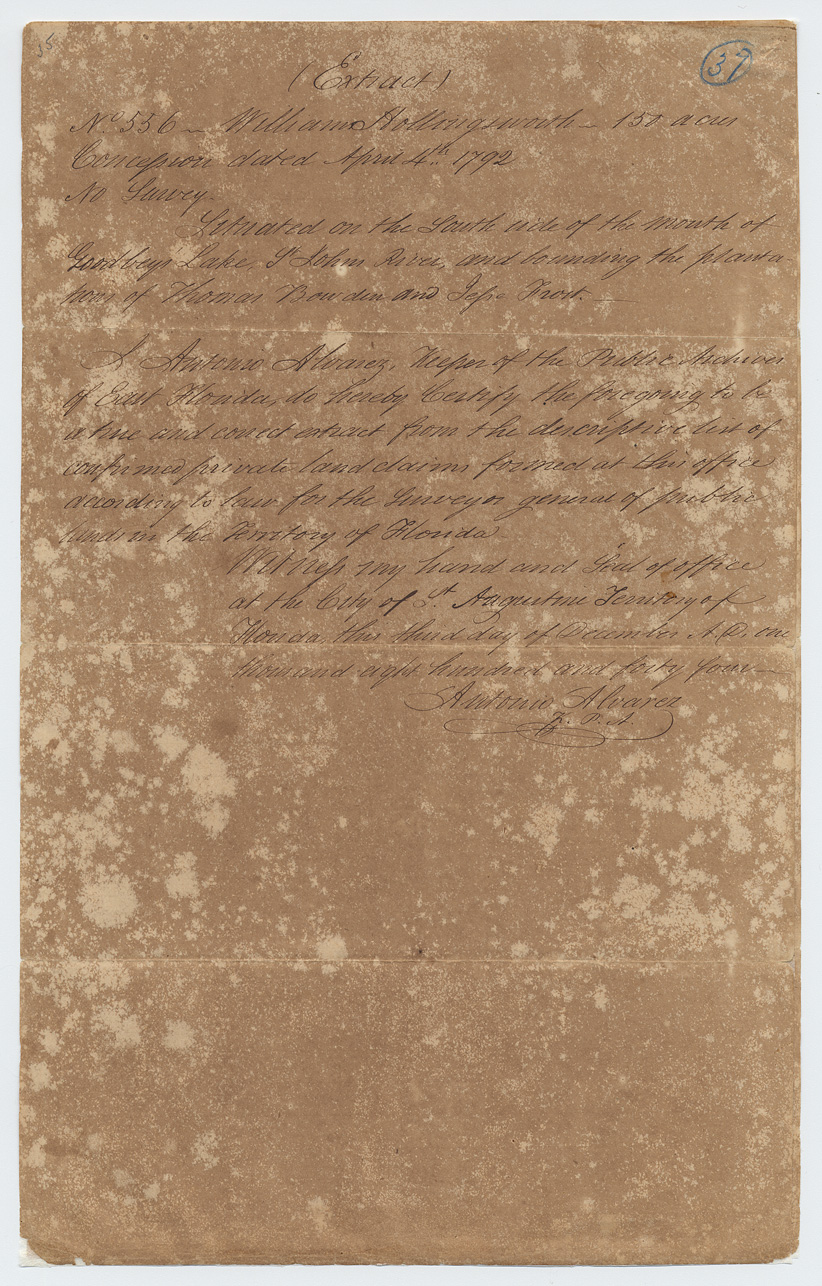 15
37
(Extract)
No. 556 – William Hollingsworth – 150 acres
Concession dated April 4th 1792
No Survey.
Situated on the South side of the mouth of
Goodbeys Lake, St Johns River, and bounding the planta-
tions of Thomas Bowden and Jesse Frost. –
I Antonio Alvarez, Keeper of the Public Archives
of East Florida, do hereby Certify the foregoing to be
a true and correct extract from the descriptive list of
confirmed private land claims formed at this office
according to law for the Surveyor general of public
lands in the Territory of Florida.
Witness my hand and Seal of office
at the City of St. Augustine Territory of
Florida, this third day of December A.D. one
thousand eight hundred and forty four –
Antonio Alvarez
K. P. A.